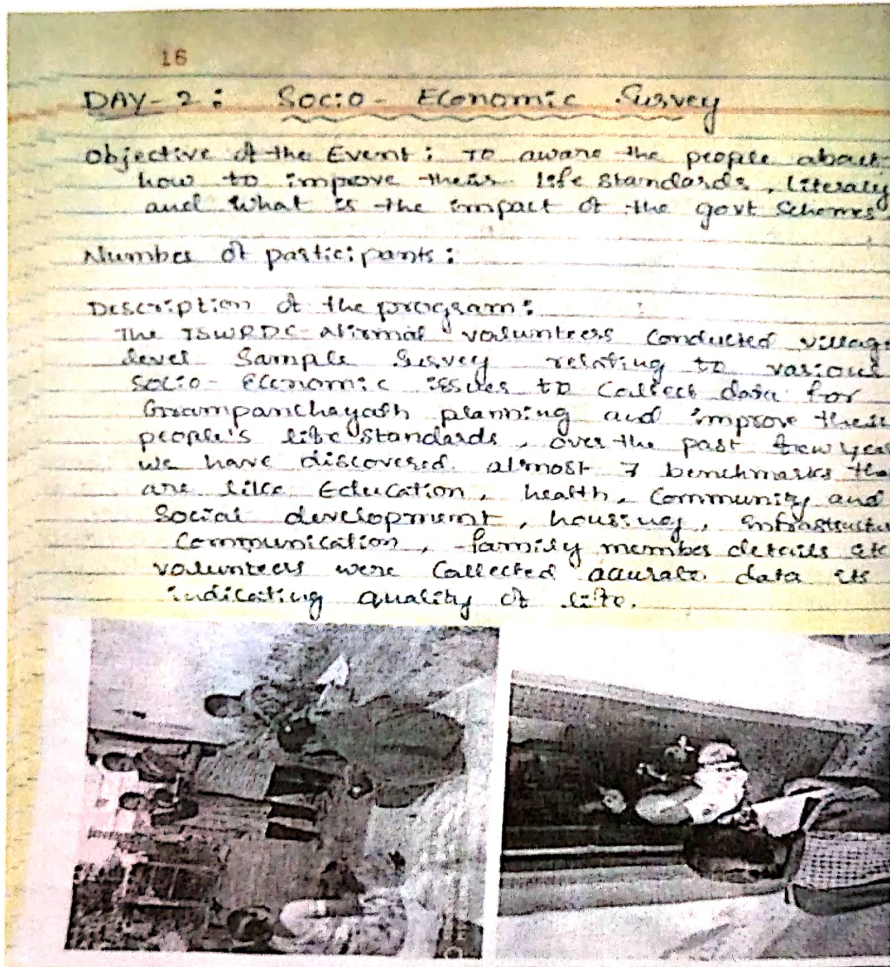 16
DAY-2: Socio-Economic Survey
Objective of the Event: To aware the people about
how to improve their life standards, literacy
and what is the impact of the govt Schemes
Number of participants:
Description of the program:
The TSWRDC-Nirmal volunteers conducted village
level Sample Survey relating to various
Socio-Economic issues to Collect data for
Grampanchayath planning and improve their
people's life standards, over the past few year
we have discovered almost 7 benchmarks tha
are like Education, health, Community and
Social development, housing, infrastructu
Communication, family member details etc
volunteers were Collected accurate data its
indicating quality of life.